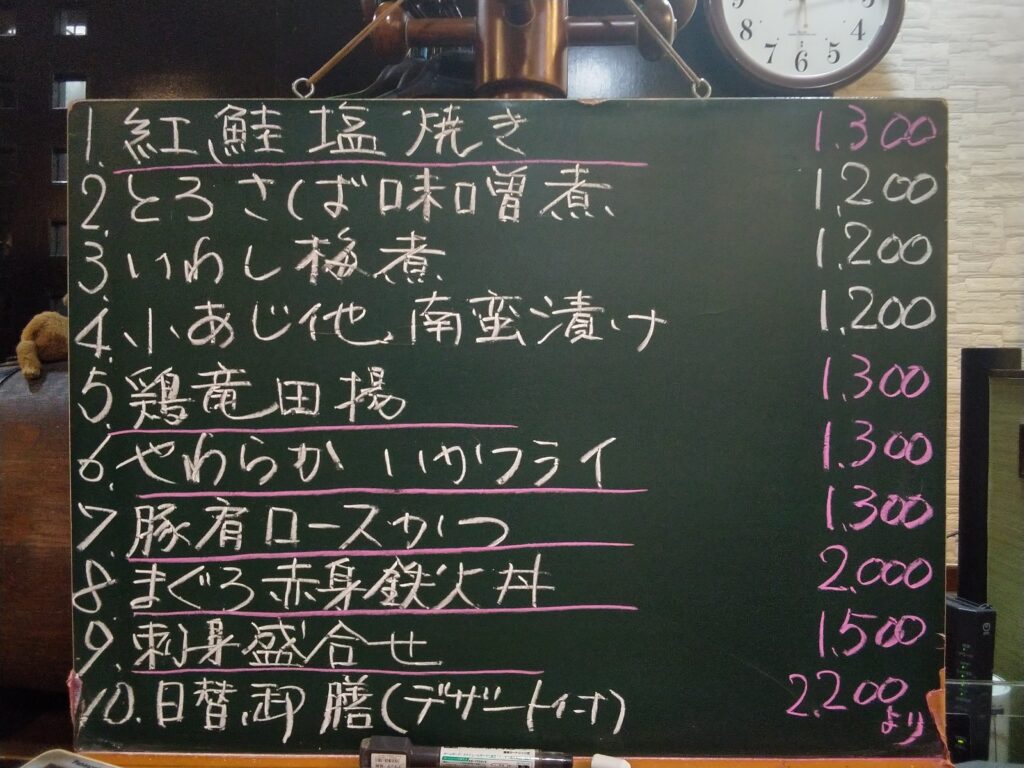 9
8
7
6
5
4
1. 紅鮭塩焼き 1.300
2. とろさば味噌煮 1.200
3. いわし梅煮 1.200
4. 小あじ他、南蛮漬け 1.200
5. 鶏竜田揚 1.300
6. やわらかいかフライ 1.300
7. 豚肩ロースかつ 1.300
8. まぐろ赤身鉄火丼 2.000
9. 刺身盛合せ 1.500
10. 日替御膳(デザート付) 2.200より